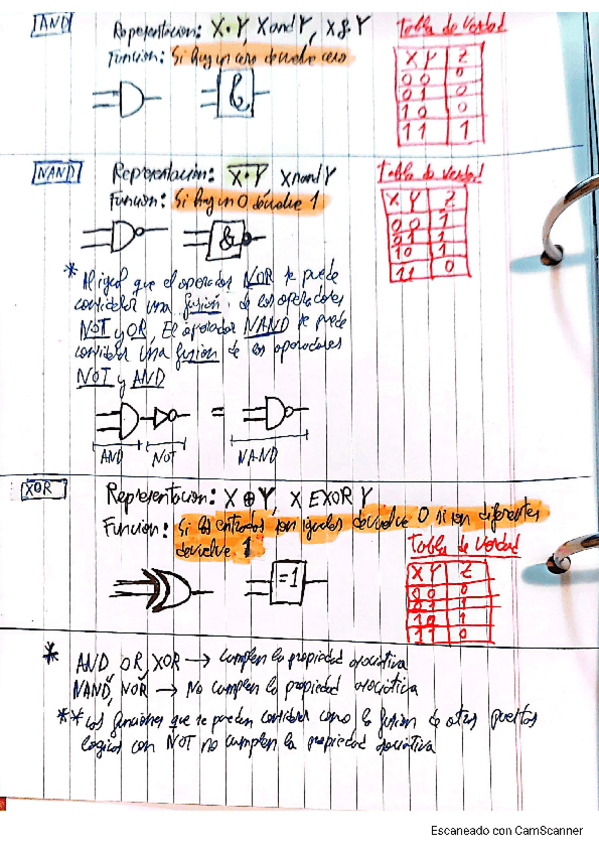 AND
Representacion: X•Y, X and Y, X & Y
Funcion: Si hay un cero devuelve cero
&
Tabla de Verdad
X Y Z
0 0 0
0 1 0
1 0 0
1 1 1
NAND
Representacion: X•Y X nand Y
Funcion: Si hay un 0 devuelve 1
&
Tabla de verdad
X Y Z
0 0 1
0 1 1
1 0 1
1 1 0
* Al igual que el operador NOR se puede
considerar una fusion de los operadores
NOT y OR, El operador NAND se puede
considerar una fusion de los operadores
NOT y AND
=
AND NOT NAND
XOR
Representacion: X ⊕ Y, X EXOR Y
Funcion: Si las entradas son iguales devuelve 0 si son diferentes
devuelve 1
=1
Tabla de Verdad
X Y Z
0 0 0
0 1 1
1 0 1
1 1 0
* AND, OR, XOR → Cumplen la propiedad asociativa
NAND, NOR → No cumplen la propiedad asociativa
** Las funciones que se pueden considerar como la fusion de otras puertas
logicas con NOT no cumplen la propiedad asociativa
Escaneado con CamScanner